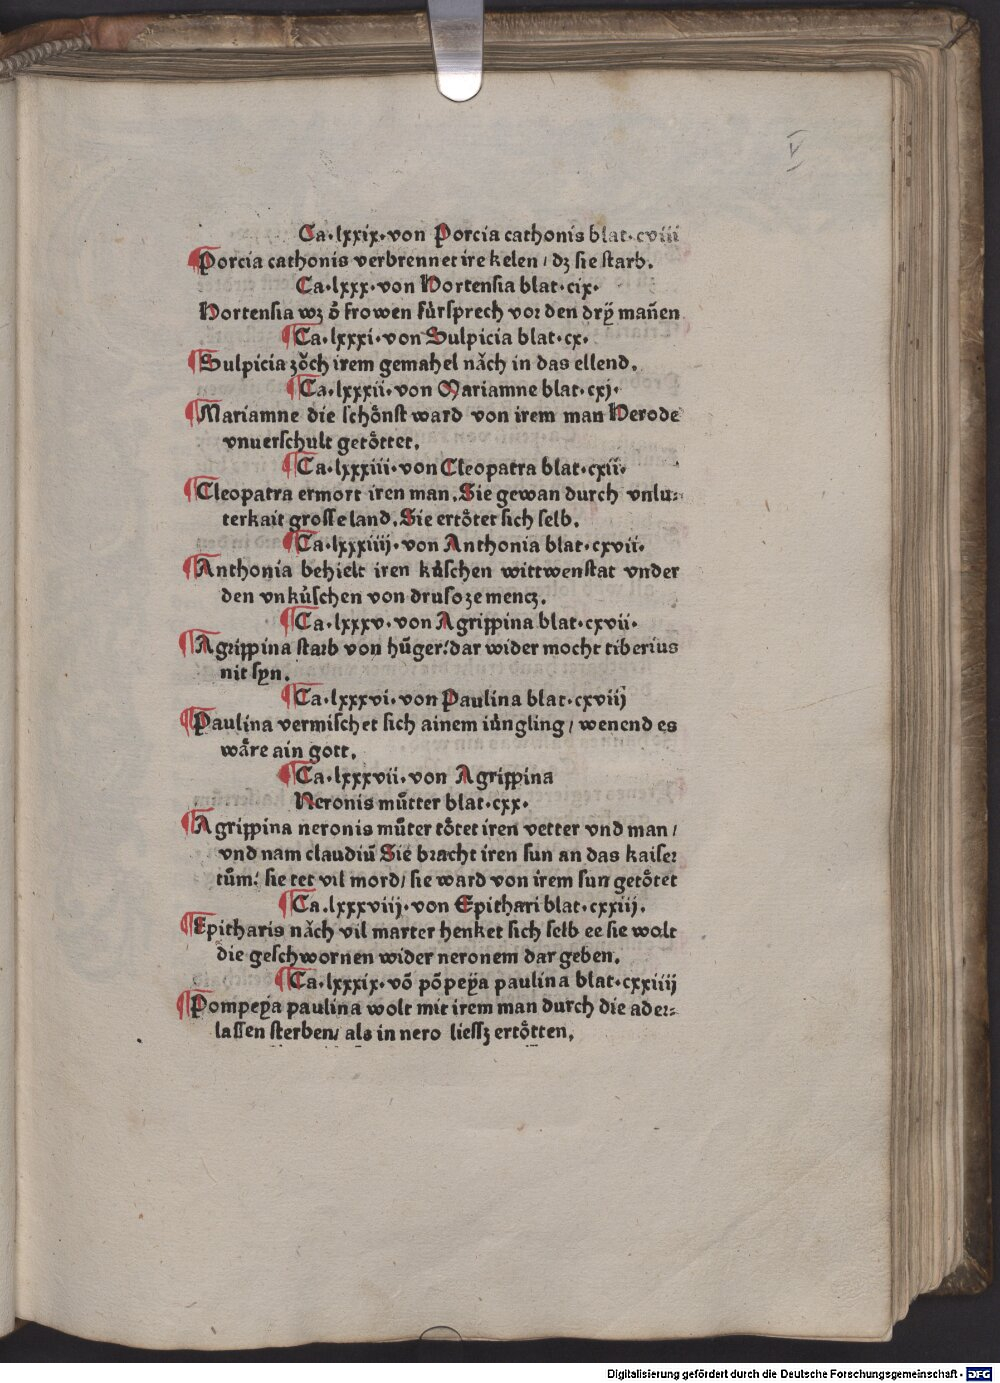 V
Ca·lxxix·von Porcia cathonis blat·cviii
Porcia cathonis verbrennet ire kelen / dz sie starb.
Ca·lxxx·von Hortensia blat·cix·
Hortensia wz d̾ frowen fúrsprech vor den drÿ mañen
¶Ca·lxxxi·von Sulpicia blat·cx·
¶Sulpicia zoͤch irem gemahel naͤch in das ellend.
¶Ca·lxxxii·von Mariamne blat·cxj·
¶Mariamne die schoͤnst ward von irem man Herode
vnuerschult getoͤttet.
¶Ca·lxxxiii·von Cleopatra blat·cxii·
¶Cleopatra ermort iren man. Sie gewan durch vnlu⸗
terkait grosse land. Sie ertoͤtet sich selb.
¶Ca·lxxxiiij·von Anthonia blat·cxvii·
¶Anthonia behielt iren kúschen wittwenstat vnder
den vnkúschen von druso ze mencz.
¶Ca·lxxxv·von Agrippina blat·cxvii·
¶Agrippina starb von hūger: dar wider mocht tiberius
nit syn.
¶Ca·lxxxvi·von Paulina blat·cxviij
¶Paulina vermischet sich ainem iúngling / wenend es
waͤre ain gott.
¶Ca·lxxxvii·von Agrippina
Neronis můtter blat·cxx·
¶Agrippina neronis můter toͤtet iren vetter vnd man /
vnd nam claudiū Sie bracht iren sun an das kaiser
tům: sie tet vil mord / sie ward von irem sun getoͤtet
¶Ca.lxxxviij·von Epithari blat·cxxiij.
¶Epitharis naͤch vil marter henket sich selb ee sie wolt
die geschwornen wider neronem dar geben.
¶Ca·lxxxix·vō pōpeÿa paulina blat·cxxiiij
¶Pompeÿa paulina wolt mit irem man durch die ader⸗
lassen sterben / als in nero liessz ertoͤtten.
Digitalisierung gefördert durch die Deutsche Forschungsgemeinschaft - DFG